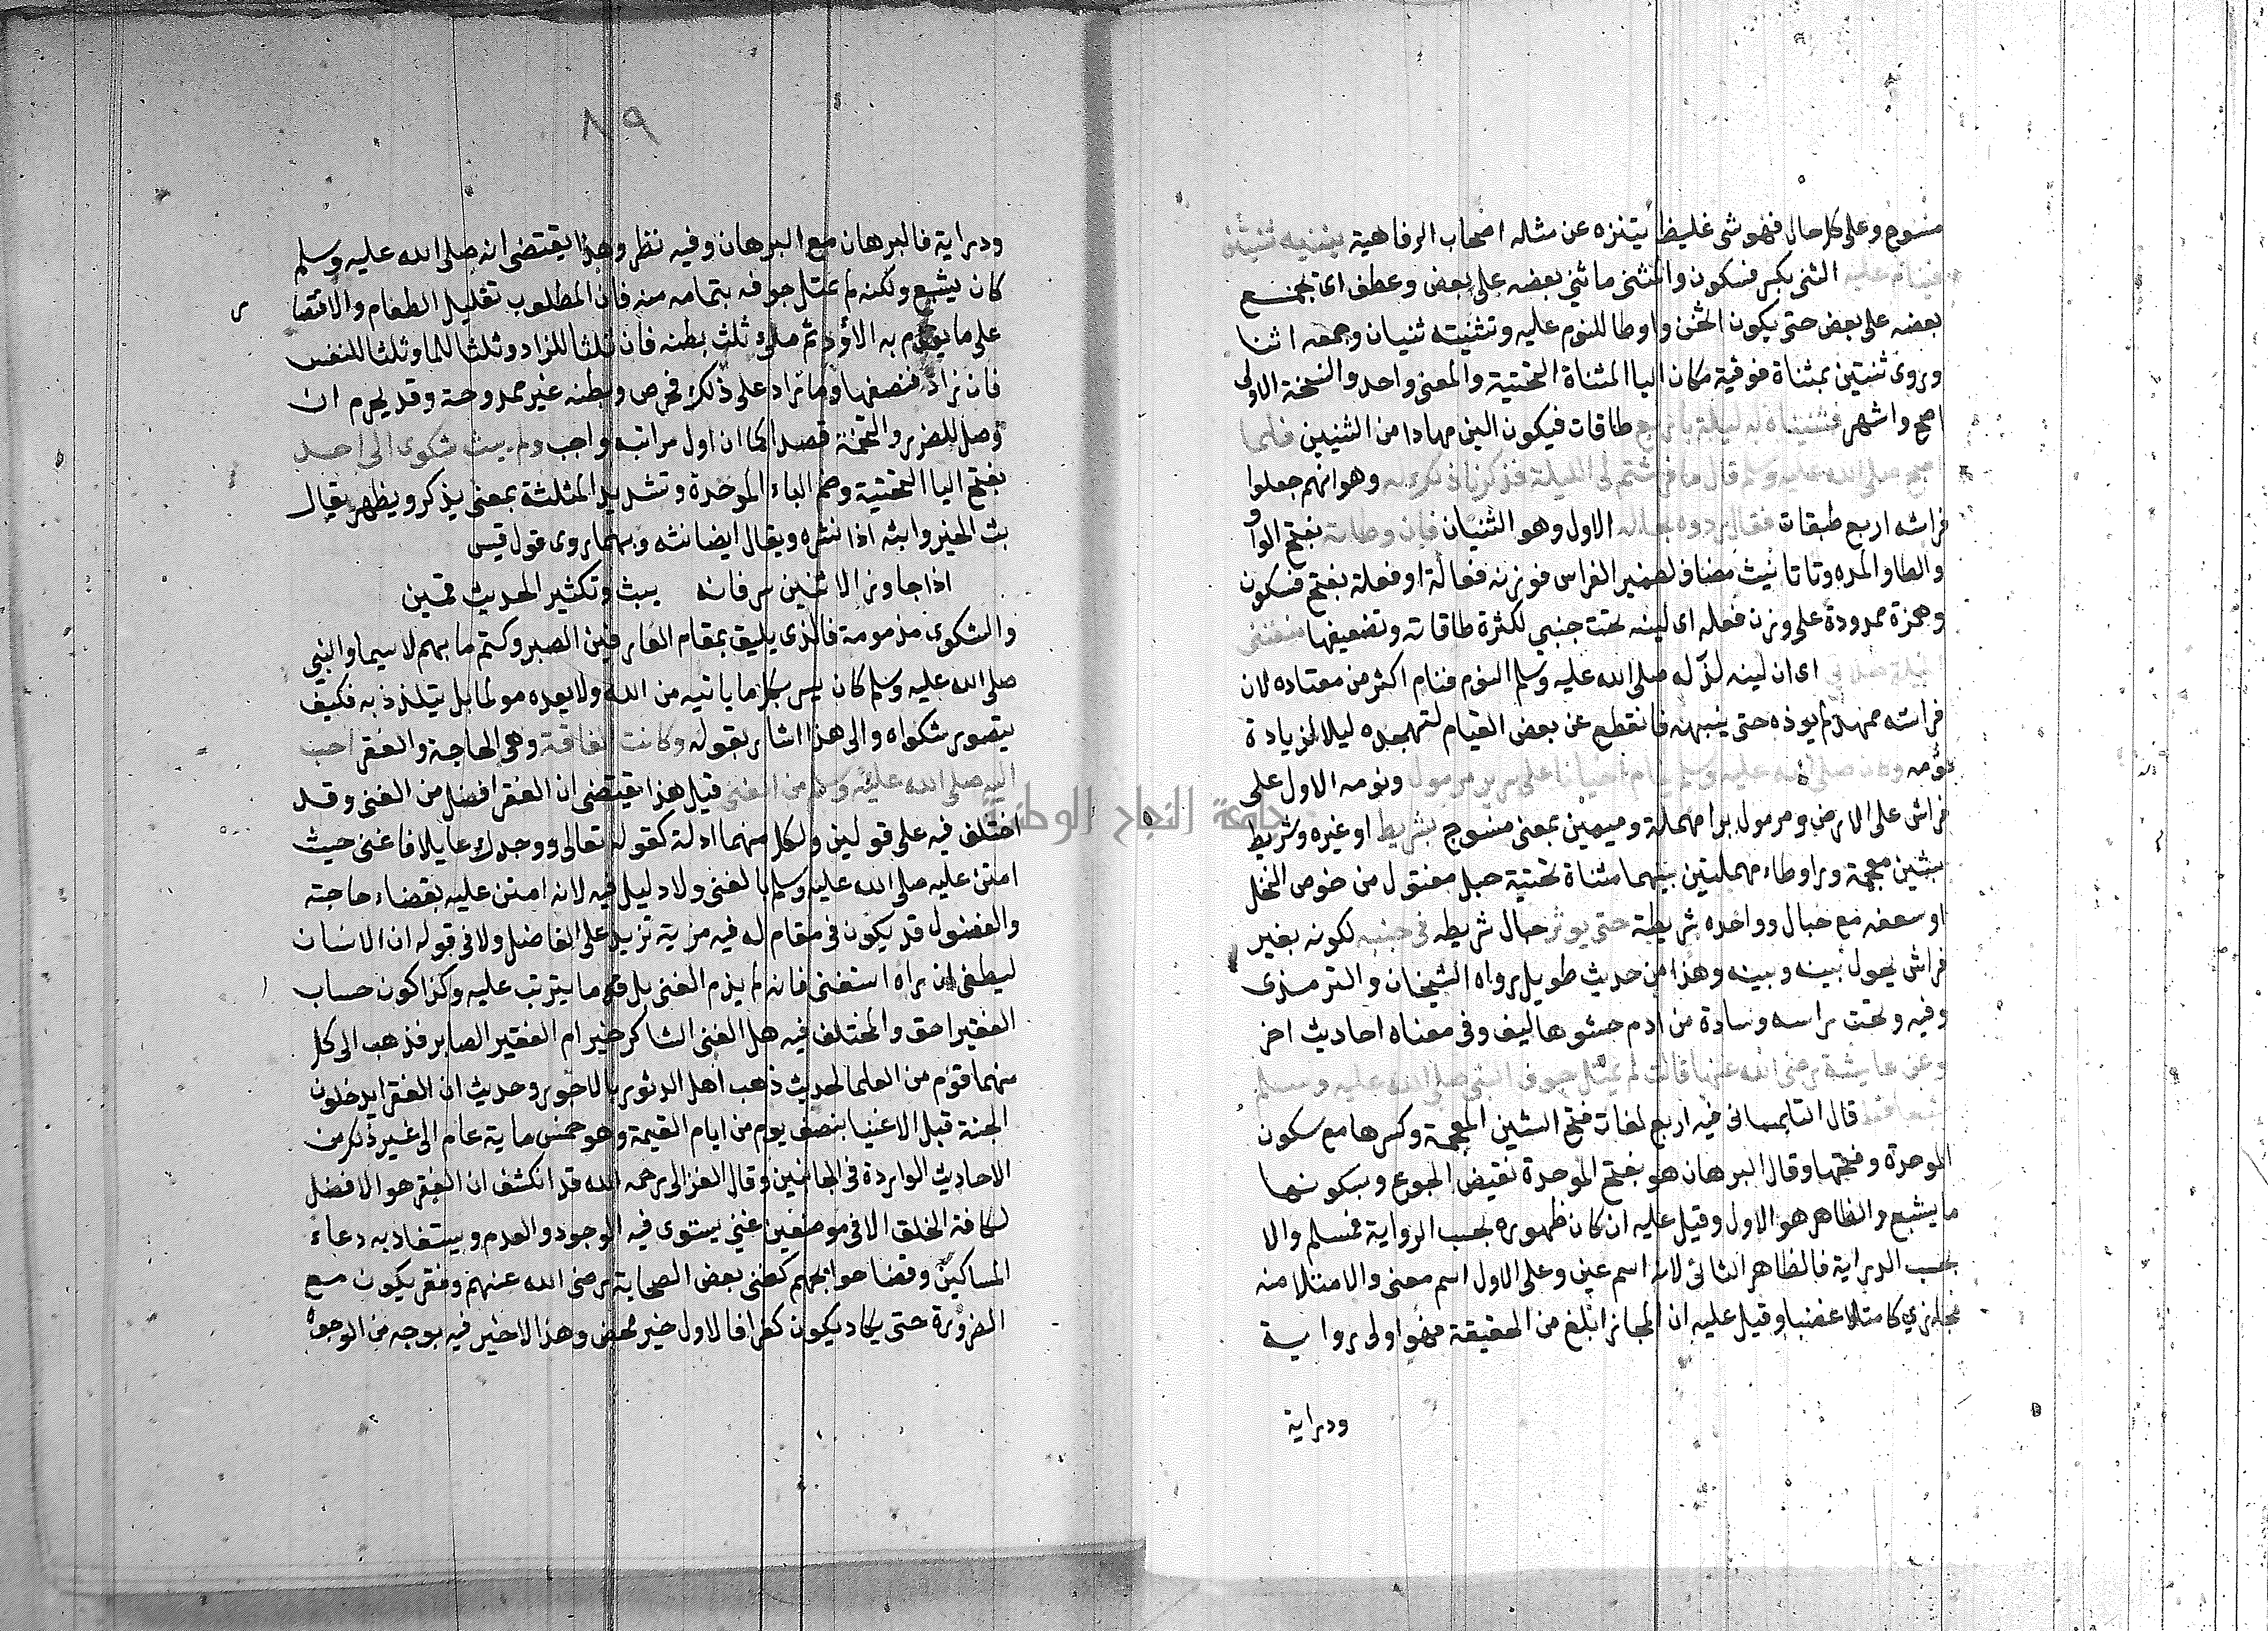 منسوج وعلى كل حال فهو شي غليظ يتنزه عن مثله اصحاب الرفاهية يثنيه ثنيتين
فينام عليه الثنى بكسر فسكون والمثنى ما ثني بعضه على بعض وعطف اى تجمع
بعضه على بعض حتى يكون اثخن واوطا للنوم عليه وتثنيته ثنيان وجمعه اثنا
وروى ثنتين بمثناة فوقية مكان اليا المثناة التحتية والمعنى واحد والنسخة الاولى
اصح واشهر فثنيناه له ليلة باربع طاقات فيكون الين مهادا من الثنيين فلما
اصبح صلى الله عليه وسلم قال ما فرشتم لى الليلة فذكرنا ذلك له وهو انهم جعلوا
فراشه اربع طبقات فقال ردوه بحاله الاول وهو الثنيان فان وطاته بفتح الواو
والطا والمده وتا تانيث مضاف لضمير الفراس فوزنه فعالة او فعلة بفتح فسكون
وهمزة ممدودة على وزن فعله اى لينه تحت جنبي لكثرة طاقاته وتضعيفها منعتنى
الليلة صلاتى اى ان لينه لذ له صلى الله عليه وسلم النوم فنام اكثر من معتاده لان
فراشه ممهد لم يوذه حتى ينبهه فانقطع عن بعض القيام لتهجده ليلا لزيادة
نومه وكان صلى الله عليه وسلم ينام احيانا على سرير مرمول ونومه الاول على
فراش على الارض ومرمول برا مهملة وميمين بمعنى منسوج بشريط او غيره وشريط
بشين معجمة ورا وطاء مهملتين بينهما مثناة تحتية حبل مفتول من خوص النخل
او سعفه مع حبال وواحده شريطة حتى يوثر حبال شريطه فى جنبه لكونه بغير
فراش يحول بينه وبينه وهذا من حديث طويل رواه الشيخان والترمذى
وفيه وتحت راسه وسادة من ادم حشوها ليف وفى معناه احاديث اخر
وعن عايشة رضى الله عنها قالت لم يمتل جوف النبى صلى الله عليه وسلم
شبعا قط قال التلمسانى فيه اربع لغات فتح الشين المعجمة وكسرها مع سكون
الموحدة وفتحها وقال البرهان هو بفتح الموحدة نقيض الجوع وبسكونها
ما يشبع والظاهر هو الاول وقيل عليه ان كان ظهوره بحسب الرواية فمسلم والا
بحسب الدراية فالظاهر الثانى لانه اسم عين وعلى الاول اسم معنى والامتلا منه
مجازي كامتلا غضبا وقيل عليه ان المجاز ابلغ من الحقيقة فهو اولى رواية
ودراية
٨٩
ودراية فالبرهان مع البرهان وفيه نظر وهذا يقتضى انه صلى الله عليه وسلم
كان يشبع ولكنه لم يمتل جوفه بتمامه منه فان المطلوب تقليل الطعام والاقتصا ر
على ما يقوم به الاود ثم ملو ثلث بطنه فان ثلثا للزاد وثلثا للما وثلثا للنفس
فان زاد فنصفها وما زاد على ذلك فحرص وبطنه غير ممدوحة وقد يحرم ان
وصل للضرر والتخمة قصدا كما ان اول مراتبه واجب ولم يبث شكوى الى احد
بفتح اليا التحتية وضم الباء الموحدة وتشديد المثلثة بمعنى يذكر ويظهر يقال
بث الخير وابثه اذا نشره ويقال ايضا نثه وبهما روى قول قيس
اذا جاوز الاثنين سر فانه يبث وتكثير الحديث قمين
والشكوى مذمومة فالذى يليق بمقام العارفين الصبر وكتم ما بهم لا سيما والنبي
صلى الله عليه وسلم كان يسر بكل ما ياتيه من الله ولا يعده مولما بل يتلذذ به فكيف
يتصور شكواه والى هذا اشار بقوله وكانت الفاقة وهى الحاجة والفقر احب
اليه صلى الله عليه وسلم من الغنى قيل هذا يقتضى ان الفقر افضل من الغنى وقد
اختلف فيه على قولين ولكل منهما ادلة كقوله تعالى ووجدك عايلا فاغنى حيث
امتن عليه صلى الله عليه وسلم بالغنى ولا دليل فيه لانه امتن عليه بقضاء حاجته
والمفضول قد يكون فى مقام له فيه مزية تزيد على الفاضل ولا فى قوله ان الانسان
ليطغى ان راه استغنى فانه لم يذم الغنى بل ما يترتب عليه وكذا كون حساب
الفقير احق والمختلف فيه هل الغنى الشاكر خير ام الفقير الصابر فذهب الى كل
منهما قوم من العلما لحديث ذهب اهل الدثور بالاجور وحديث ان الفقرا يدخلون
الجنة قبل الاغنيا بنصف يوم من ايام القيمة وهو خمس ماية عام الى غير ذلك من
الاحاديث الواردة فى الجانبين وقال الغزالى رحمه الله قد انكشف ان الفقر هو الافضل
لكافة الخلق الا فى موضعين غنى يستوى فيه الوجود والعدم ويستفاد به دعاء
المساكين وقضا حوايجهم كغنى بعض الصحابة رضى الله عنهم وفقر يكون مع
الضرورة حتى يكاد يكون كفرا فالاول خير محض وهذا لا خير فيه بوجه من الوجوه
جامعة النجاح الوطنية